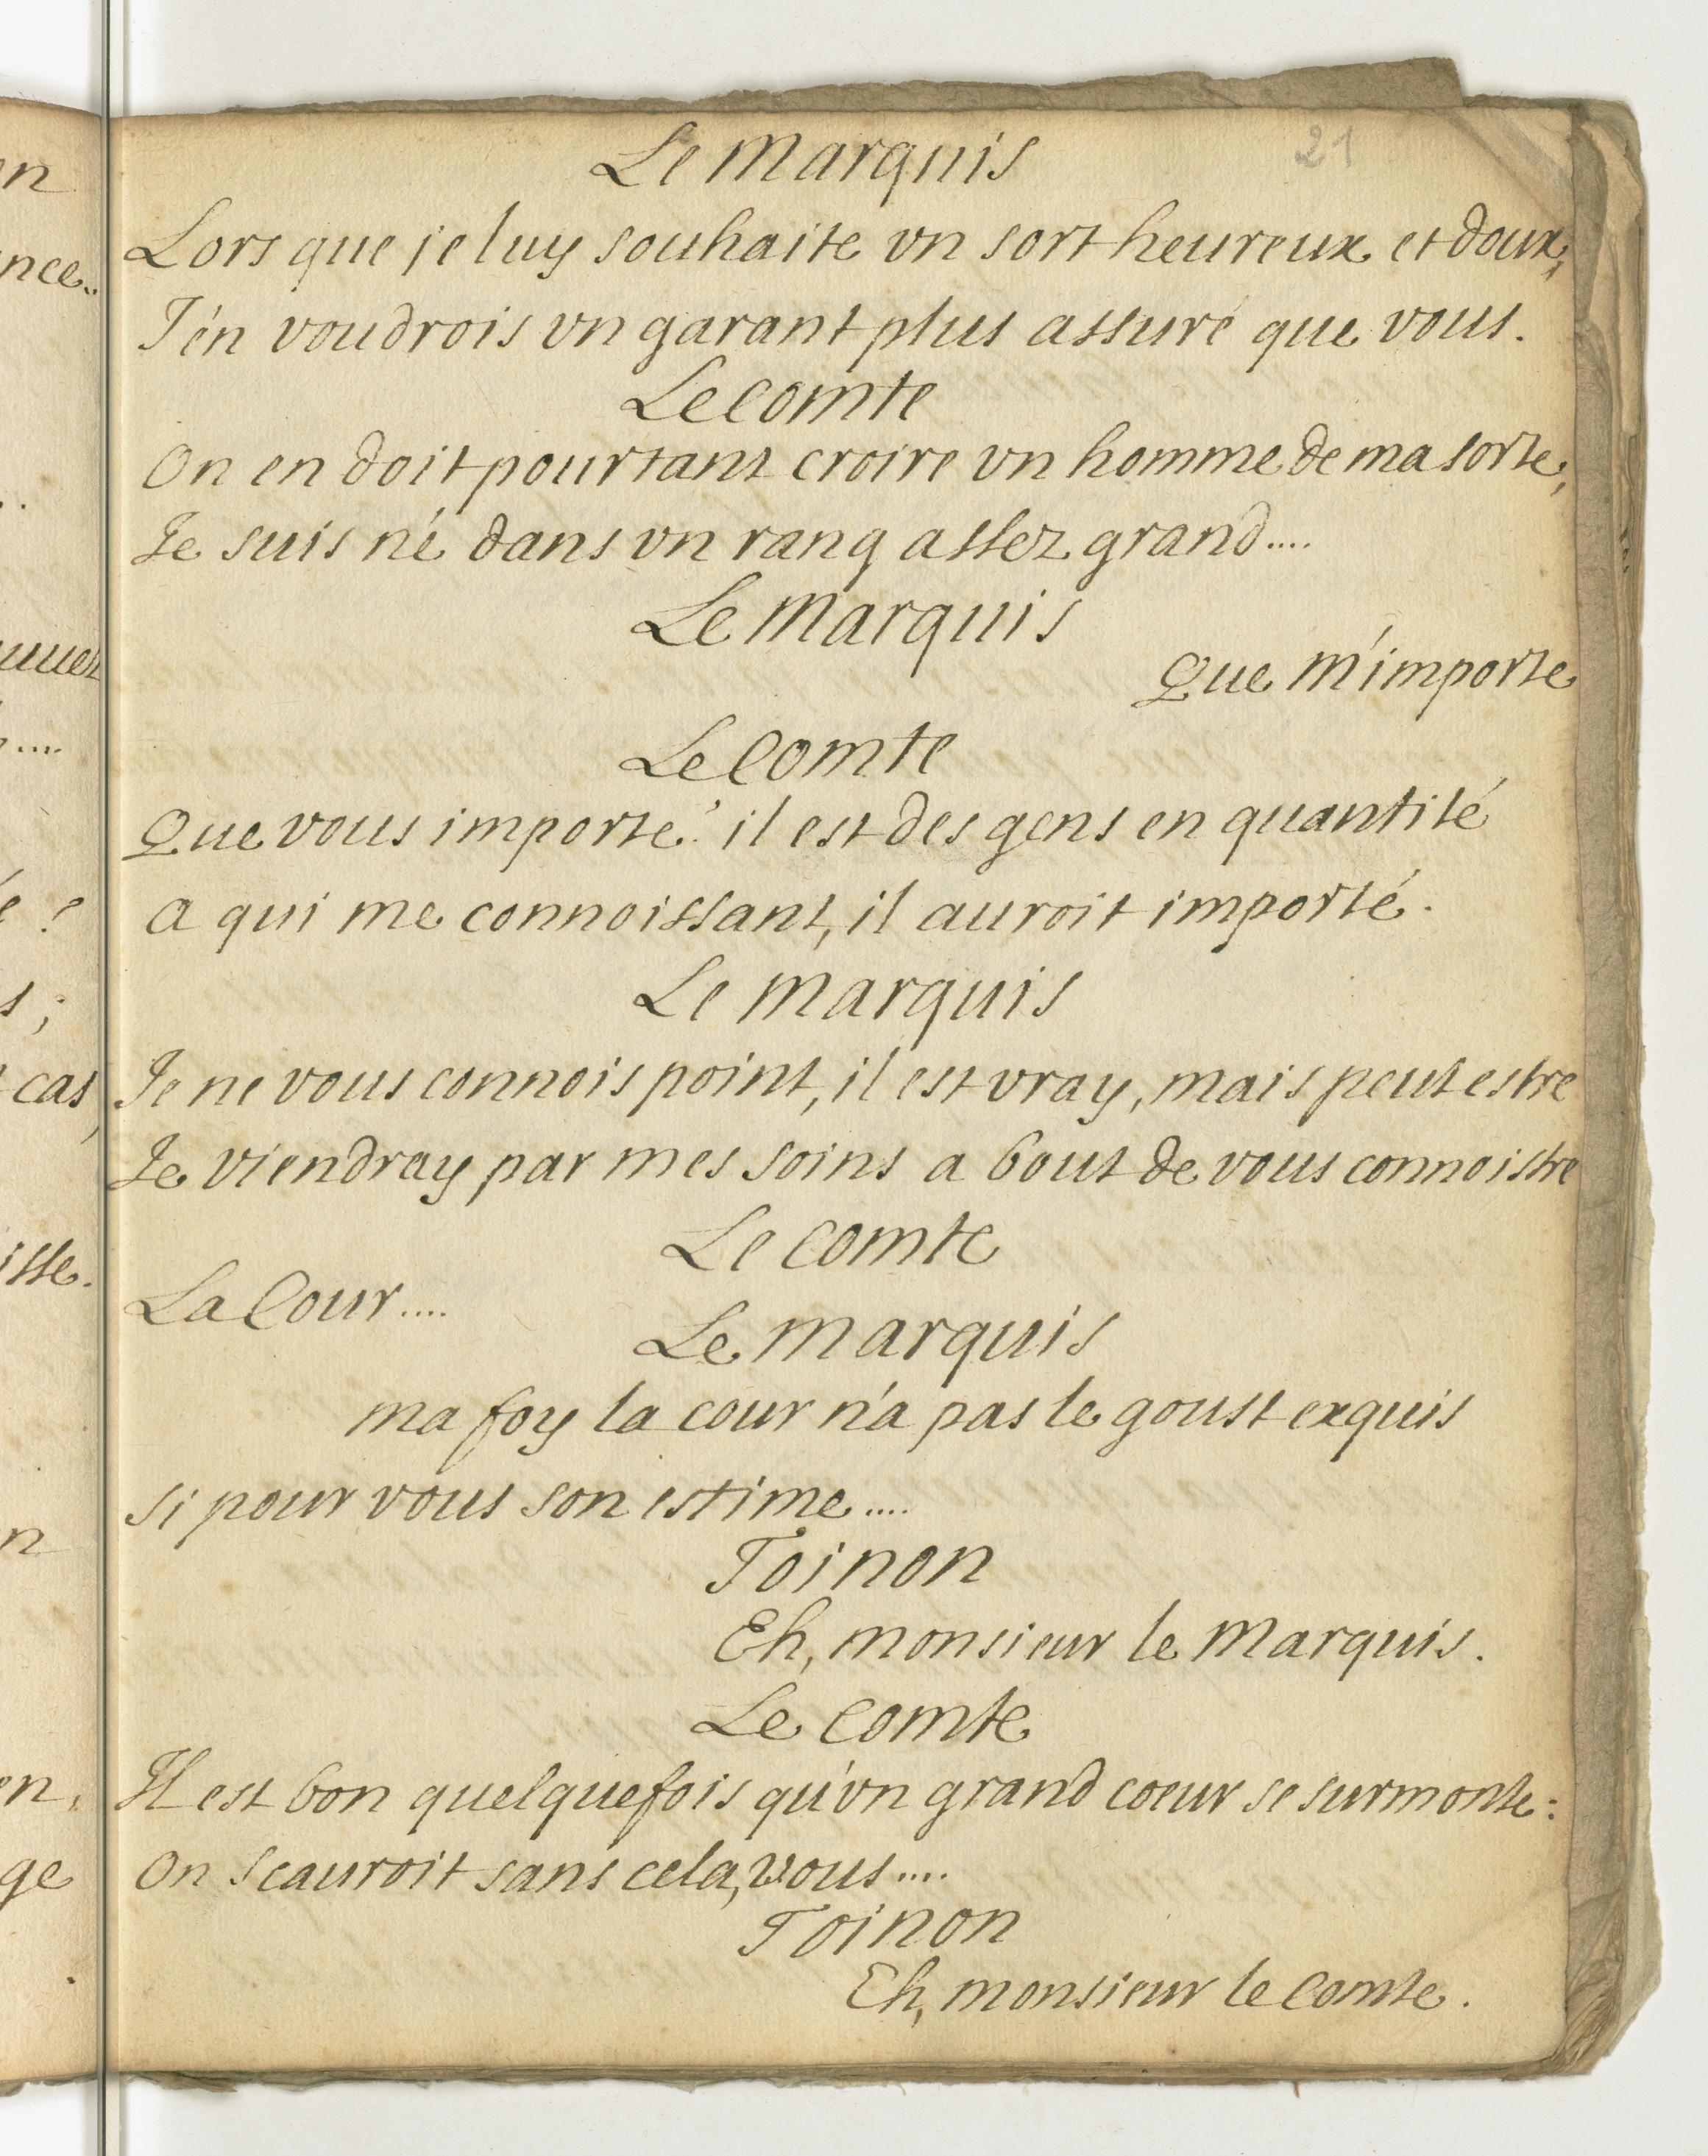 21
Le Marquis
Lors que je luy souhaite vn sort heureux et doux,
J'en voudrois vn garant plus assuré que vous.
Le comte
On en doit pourtant croire vn homme de ma sorte,
Je suis né dans vn rang assez grand....
Le Marquis
Que m'importe
Le Comte
Que vous importe? il est des gens en quantité
a qui me connoissant, il auroit importé.
Le Marquis
Je ne vous connois point, il est vray, mais peut estre
Je viendray par mes soins a bout de vous connoistre
Le comte
La Cour....
Le Marquis
ma foy la cour n'a pas le goust exquis
si pour vous son estime....
Toinon
Eh, monsieur le Marquis.
Le comte
Il est bon quelquefois qu'vn grand coeur se surmonte:
On scauroit sans cela, vous....
Toinon
Eh, monsieur le Comte.